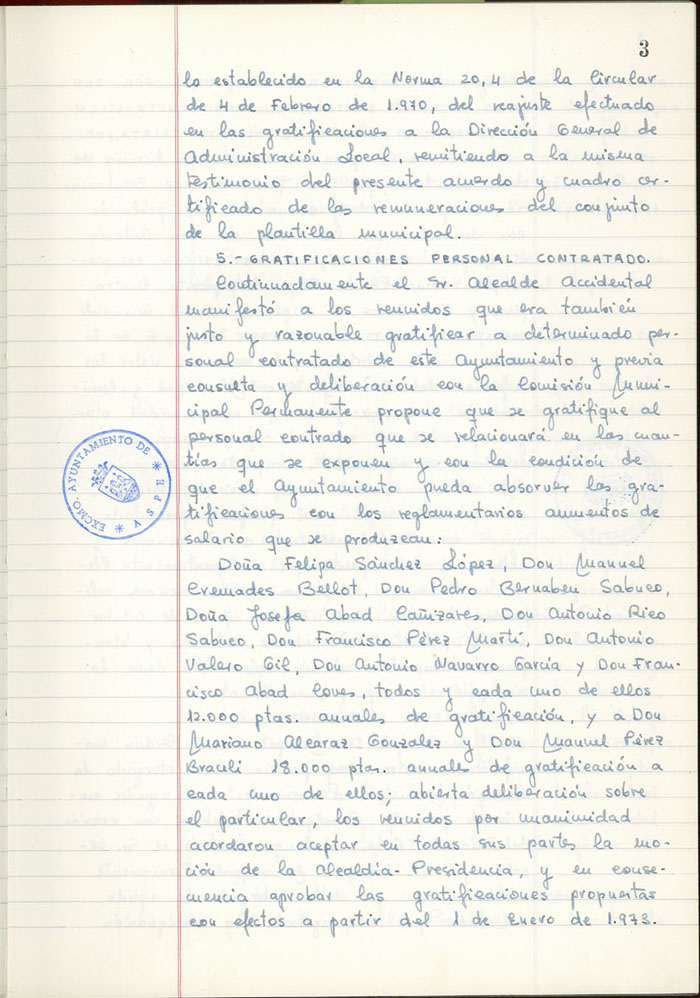 3
lo establecido en la Norma 20,4 de la Circular
de 4 de Febrero de 1.970, del reajuste efectuado
en las gratificaciones a la Dirección General de
Administración Local, remitiendo a la misma
testimonio del presente acuerdo y cuadro cer-
tificado de las remuneraciones del conjunto
de la plantilla municipal.
5.- GRATIFICACIONES PERSONAL CONTRATADO.
Continuadamente el Sr. Alcalde Accidental
manifestó a los reunidos que era también
justo y razonable gratificar a determinado per-
sonal contratado de este Ayuntamiento y previa
consulta y deliberación con la Comisión Muni-
cipal Permanente propone que se gratifique al
personal contrado que se relacionará en las cuan-
tías que se exponen y con la condición de
que el Ayuntamiento pueda absorver las gra-
tificaciones con los reglamentarios aumentos de
salario que se produzcan:
Doña Felipa Sánchez López, Don Manuel
Cremades Bellot, Don Pedro Bernabeu Sabuco,
Doña Josefa Abad Cañizares, Don Antonio Rico
Sabuco, Don Francisco Pérez Martí, Don Antonio
Valero Gil, Don Antonio Navarro García y Don Fran-
cisco Abad Coves, todos y cada uno de ellos
12.000 ptas. anuales de gratificación, y a Don
Mariano Alcaraz Gonzalez y Don Manuel Pérez
18.000 ptas. anuales de gratificación a
cada uno de ellos; abierta deliberación sobre
el particular, los reunidos por unanimidad
acordaron aceptar en todas sus partes la mo-
ción de la Alcaldía-Presidencia, y en conse-
cuencia aprobar las gratificaciones propuestas
con efectos a partir del 1 de Enero de 1.973.
EXCMO AYUNTAMIENTO DE
ASPE